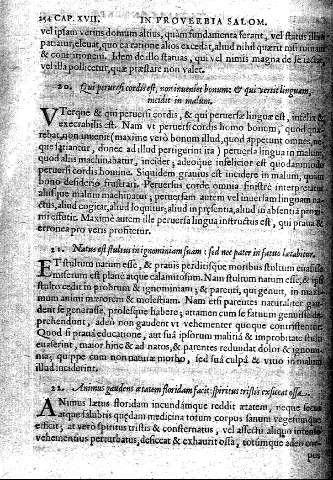 254 CAP. XVII. IN PROVERBIA SALOM.
vel ipsam verius domum altius, quàm fundamenta ferant, vel status illius
patiatur, eleuat, quo ea ratione alios excedat, aliud nihil quærit nisi ruinam
& contritionem. Idem de illo statuas, qui vel nimis magna de se iactat,
vel illa pollicetur, quæ præstare non valet.
20. Qui peruersi cordis est, non inueniet bonum: & qui vertit linguam,
incidit in malum.
VTerque & qui peruersi cordis, & qui peruersæ linguæ est, infelix &
execrabilis est. Nam vt peruersi cordis homo bonum, quod
non inuenit (maxime verò bonum illud, quod appetunt omnes,
donec ad illud pertigerint) peruersa lingua in malum,
quod alijs machinabatur, incidet; adeoque infelicior est quodammodo
peruersi cordis homine. Siquidem grauius est incidere in malum, quàm
bono desiderio frustrari. Peruersus corde omnia sinistrè interpretatur,
alijsque malum machinatur; peruersam autem vel inuersam linguam
aliud cogitet, aliud loquitur; aliud in præsentia, aliud in absentia
Maximè autem ille peruersa lingua instructus est, qui praua &
erronea pro veris profitetur.
21. Natus est stultus in ignominiam suam: sed nec pater in fatuo lætabitur.
ET stultum natum esse, & prauis perdisque moribus stultum euasisse,
miserum est planè atque calamitosum. Nam stultum natum esse, & ipsi
stulto cedit in probrum & ignominiam; & parenti, qui genuit, in
animi mœrorem & molestiam. Nam etsi parentes naturaliter
de se generasse, prolesque habere; attamen cum se fatuum genuisse
prehendunt, adeò non gaudent vt vehementer quoque contristentur.
Quod si praua educatione, aut sua ipsorum malitia & improbitate stulti
euaserint, maior hinc & ad natos, & parentes redundat dolor &
quippe cum non naturæ morbo, sed sua culpa & vitio in malum
illud inciderint.
22. Animus gaudens ætatem floridam facit: spiritus tristis exsiccat ossa.
ANimus lætus floridam iucundamque reddit ætatem, neque secus
atque salubris quædam medicina totum corpus sanum vegetumque
efficit; at verò spiritus tristis & consternatus, vel affectu aliquo
vehementius perturbatus, desiccat & exhaurit ossa, totumque adeò cor-
pus